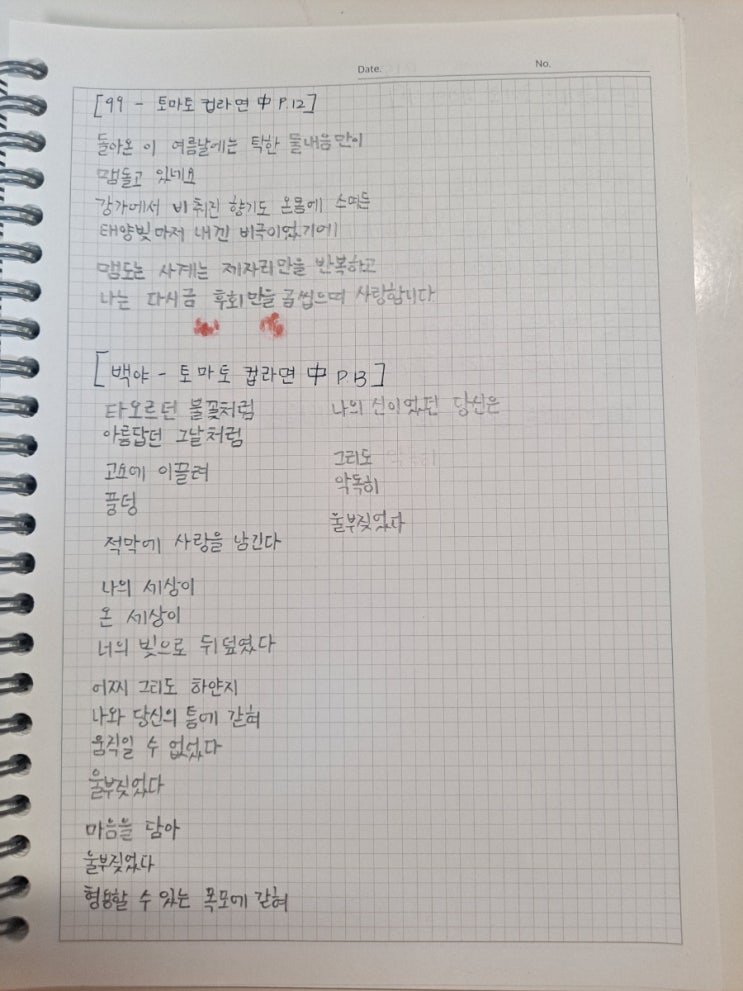 Date.
No.
[99 - 토마토 컵라면 中 P.12]
돌아온 이 여름날에는 탁한 물내음만이
맴돌고 있네요
강가에서 비춰진 향기도 온몸에 스며든
태양빛마저 내겐 비극이었기에
맴도는 사계는 제자리만을 반복하고
나는 다시금 후회만을 곱씹으며 사랑합니다
[백야 - 토마토 컵라면 中 P.13]
타오르던 불꽃처럼
아름답던 그날처럼
고요에 이끌려
풍덩
적막에 사랑을 남긴다
나의 세상이
온 세상이
너의 빛으로 뒤덮였다
어찌 그리도 하얀지
나와 당신의 틈에 갇혀
움직일 수 없었다
울부짖었다
마음을 담아
울부짖었다
형용할 수 있는 폭포에 갇혀
나의 신이었던 당신은
그리도
악독히
울부짖었다